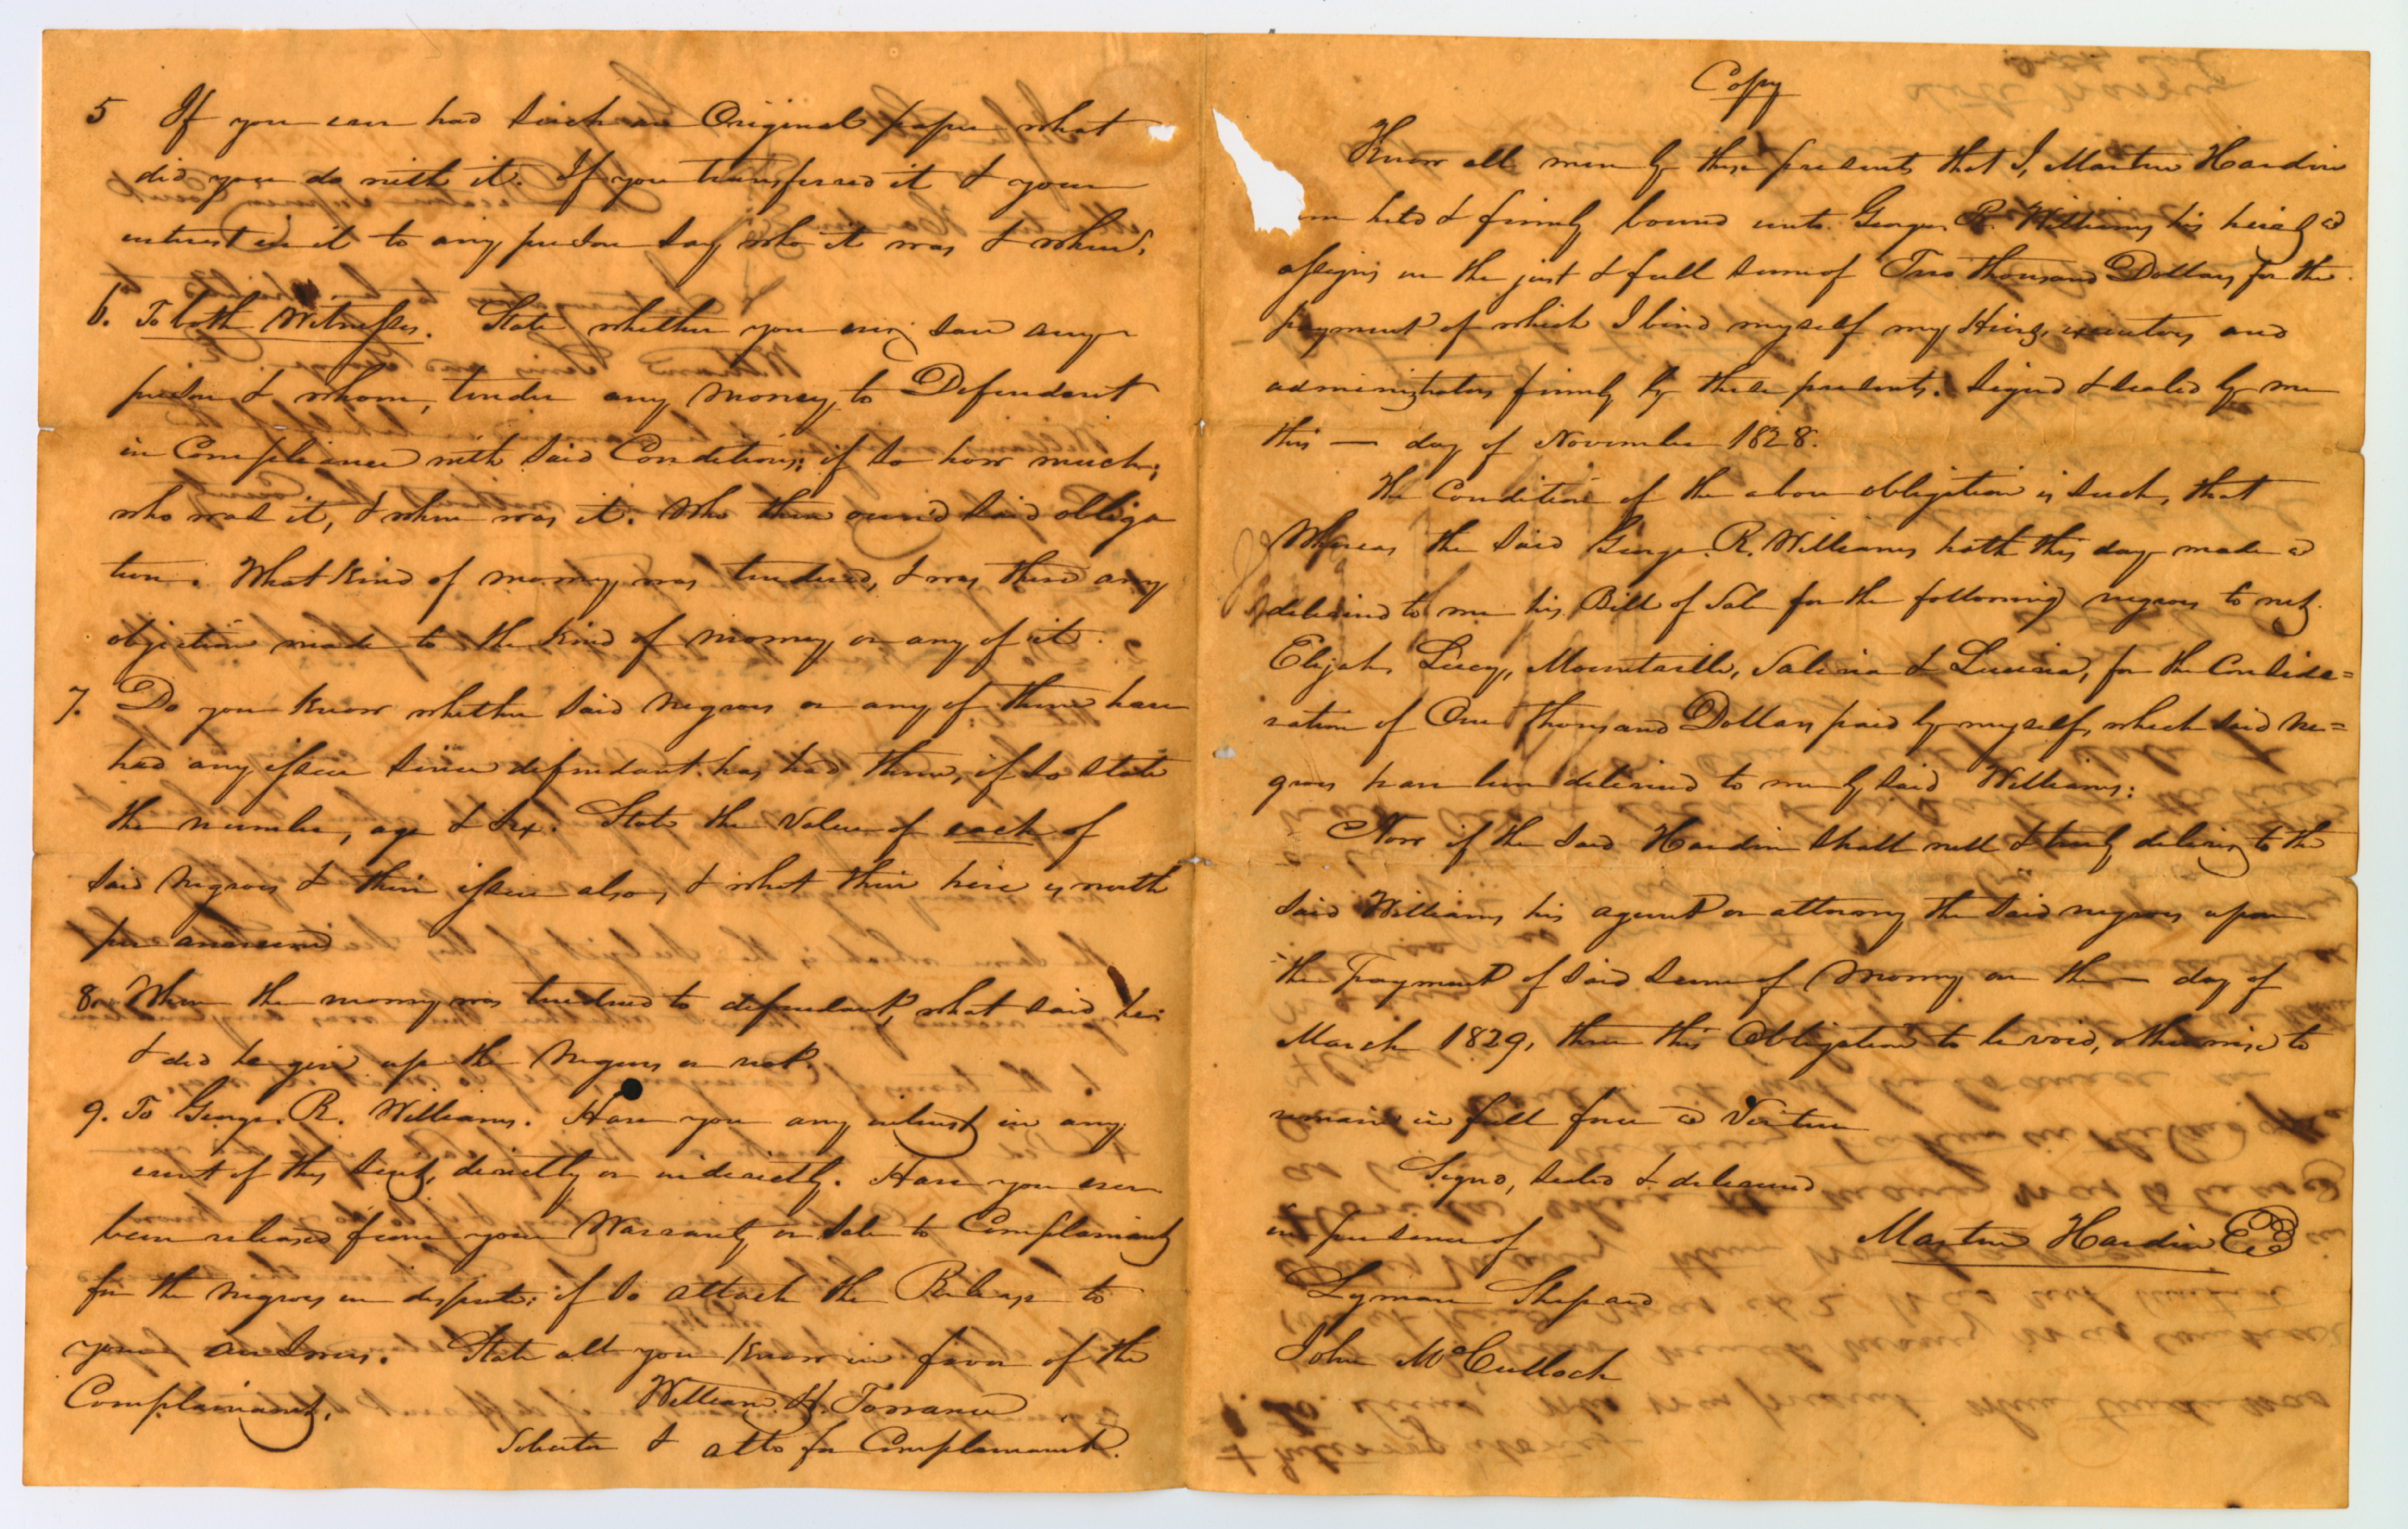 5 If you ever had such an Original paper what
did you do with it. If you transferred it & your
interest in it to any person say who it was & when,
6. To both Witnesses. State whether you ever saw any
person & whom, tender any money, to Defendant
in Compliance with said Conditions; if so how much;
who was it, & when was it. Who then own'd said obliga
tion. What kind of money was tendered, & was there any
objection made to the kind of money or any of it.
7. Do you know whether said negroes or any of them have
had any issue since defendant has had them, if so state
the number, age & sex. State the value of each of
said negroes & their issue also, & what their hire is worth
per annum
8. When the money was tendered to defendant, what said he;
& did he give up the negroes or not.
9. To George R. Williams. Have you any interest in any
event of this suit, directly or indirectly. Have you ever
been released from your Warranty or Sale to Complainant
for the negroes in dispute; if so attach the Release to
your answers. State all you know in favor of the
Complainant.
William H. Torrance
Solicitor & atto for Complainant.
Copy
Know all men by these presents that I, Martin Hardin
am held & firmly bound unto George R. Williams his heirs &
assigns in the just & full sum of Two thousand Dollars for the
payment of which I bind myself my Heirs, executors and
administrators firmly by these presents. Signed & sealed by me
this — day of November 1828.
The Condition of the above obligation is such, that
Whereas the said George R. Williams hath this day made &
delivered to me his Bill of Sale for the following negroes to wit.
Elijah, Lucy, Mountaville, Salina & Lucinia, for the Conside=
ration of One thousand Dollars paid by myself, which said ne=
groes have been delivered to me by said Williams:
Now if the said Hardin shall well & truly deliver to the
said Williams, his agent or attorney the said negroes upon
the payment of said sum of Money on the — day of
March 1829, then this Obligation to be void, otherwise to
remain in full force & Virtue
Signed, sealed & delivered
in presence of Martin Hardin
Lyman Shepard
John McCulloch